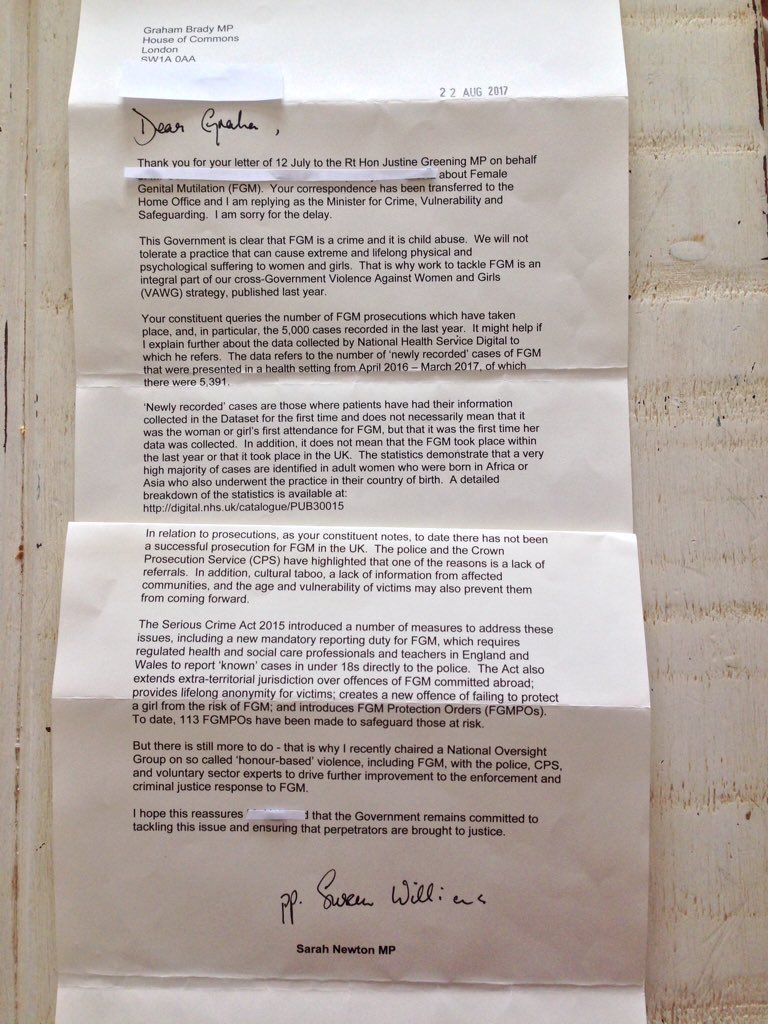 Graham Brady MP
House of Commons
London
SW1A 0AA
22 AUG 2017
Dear Graham,
Thank you for your letter of 12 July to the Rt Hon Justine Greening MP on behalf
about Female
Genital Mutilation (FGM). Your correspondence has been transferred to the
Home Office and I am replying as the Minister for Crime, Vulnerability and
Safeguarding. I am sorry for the delay.
This Government is clear that FGM is a crime and it is child abuse. We will not
tolerate a practice that can cause extreme and lifelong physical and
psychological suffering to women and girls. That is why work to tackle FGM is an
integral part of our cross-Government Violence Against Women and Girls
(VAWG) strategy, published last year.
Your constituent queries the number of FGM prosecutions which have taken
place, and, in particular, the 5,000 cases recorded in the last year. It might help if
I explain further about the data collected by National Health Service Digital to
which he refers. The data refers to the number of 'newly recorded' cases of FGM
that were presented in a health setting from April 2016 – March 2017, of which
there were 5,391.
'Newly recorded' cases are those where patients have had their information
collected in the Dataset for the first time and does not necessarily mean that it
was the woman or girl's first attendance for FGM, but that it was the first time her
data was collected. In addition, it does not mean that the FGM took place within
the last year or that it took place in the UK. The statistics demonstrate that a very
high majority of cases are identified in adult women who were born in Africa or
Asia who also underwent the practice in their country of birth. A detailed
breakdown of the statistics is available at:
http://digital.nhs.uk/catalogue/PUB30015
In relation to prosecutions, as your constituent notes, to date there has not been
a successful prosecution for FGM in the UK. The police and the Crown
Prosecution Service (CPS) have highlighted that one of the reasons is a lack of
referrals. In addition, cultural taboo, a lack of information from affected
communities, and the age and vulnerability of victims may also prevent them
from coming forward.
The Serious Crime Act 2015 introduced a number of measures to address these
issues, including a new mandatory reporting duty for FGM, which requires
regulated health and social care professionals and teachers in England and
Wales to report 'known' cases in under 18s directly to the police. The Act also
extends extra-territorial jurisdiction over offences of FGM committed abroad;
provides lifelong anonymity for victims; creates a new offence of failing to protect
a girl from the risk of FGM; and introduces FGM Protection Orders (FGMPOs).
To date, 113 FGMPOs have been made to safeguard those at risk.
But there is still more to do - that is why I recently chaired a National Oversight
Group on so called 'honour-based' violence, including FGM, with the police, CPS,
and voluntary sector experts to drive further improvement to the enforcement and
criminal justice response to FGM.
I hope this reassures that the Government remains committed to
tackling this issue and ensuring that perpetrators are brought to justice.
pp.
Sarah Newton MP